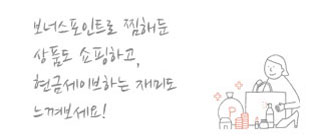 보너스포인트로 찜해둔
상품도 쇼핑하고,
현금세이브하는 재미도
느껴보세요!